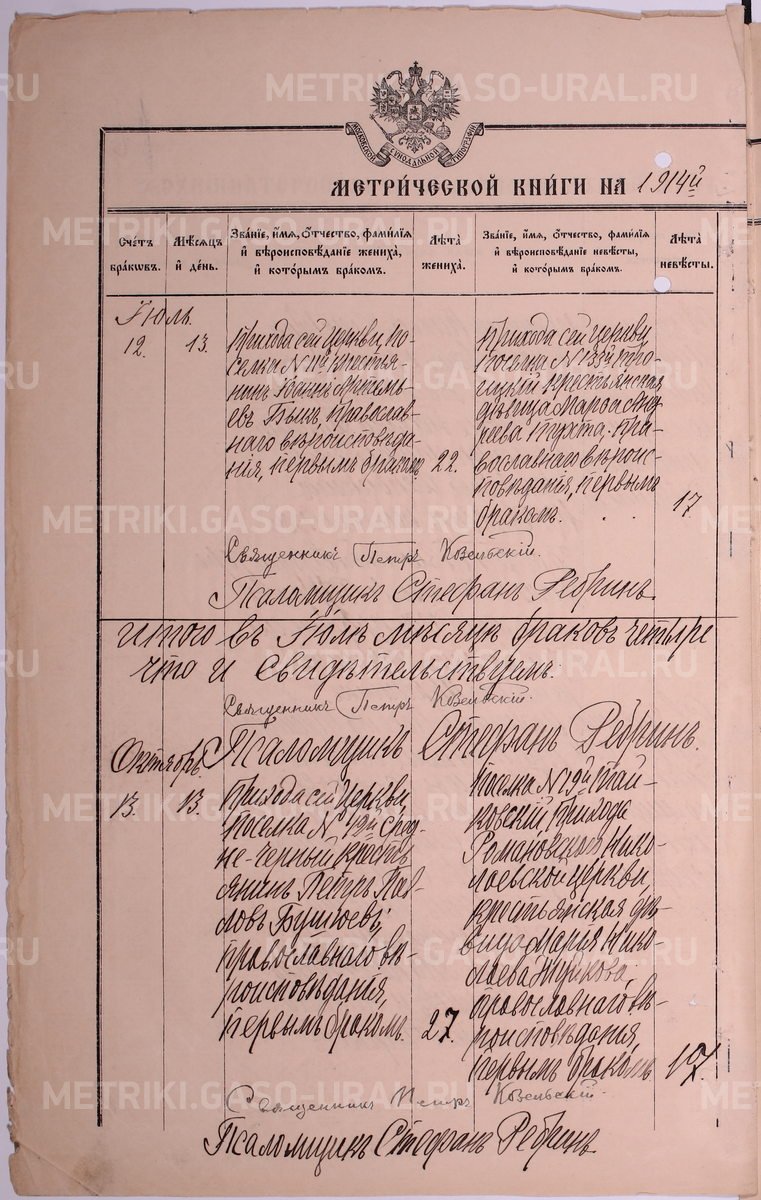 METRIKI.GASO-URAL.RU
МОСКОВСКОЙ СѴНОДАЛЬНОЙ ТИПОГРАФІИ
МЕТРИ́ЧЕСКОЙ КНИ́ГИ НА 1914й
Сче́тъ бра́ковъ.
Мѣ́сяцъ и́ де́нь.
Зва́ніе, и́мя, ѻ́тчество, фами́лія и́ вѣроисповѣ́даніе жениха̀, и́ кото́рымъ бра́комъ.
Лѣ́та жениха̀.
Зва́ніе, и́мя, ѻ́тчество, фами́лія и́ вѣроисповѣ́даніе невѣ́сты, и́ кото́рымъ бра́комъ.
Лѣ́та невѣ́сты.
Іюль.
12.
13.
Прихода сей церкви по-
селка № 11й крестья-
нинъ Іоаннъ Артемь-
евъ Быкъ, православ-
наго вѣроисповѣда-
нія, первымъ бракомъ
22.
Прихода сей церкви
поселка № 133й Тро-
ицкій крестьянская
дѣвица Марѳа Анд-
реева Пухта. Пра-
вославнаго вѣроис-
повѣданія, первымъ
бракомъ.
17.
Священникъ Петръ Козельскій.
Псаломщикъ Стефанъ Ребринъ.
Итого въ Іюлѣ мѣсяцѣ браковъ четыре
что и свидѣтельствуемъ:
Священникъ Петръ Козельскій.
Псаломщикъ Стефанъ Ребринъ.
Октябрь.
13.
13.
Прихода сей церкви,
поселка № 12й Сред-
не-Черный кресть-
янинъ Петръ Пав-
ловъ
православнаго вѣ-
роисповѣданія,
первымъ бракомъ.
27.
поселка № 19й
Прихода
Романовской Нико-
лаевской церкви,
крестьянская дѣ-
вица Марія Нико-
лаева
православнаго вѣ-
роисповѣданія,
первымъ бракомъ
17.
Священникъ Петръ Козельскій.
Псаломщикъ Стефанъ Ребринъ.